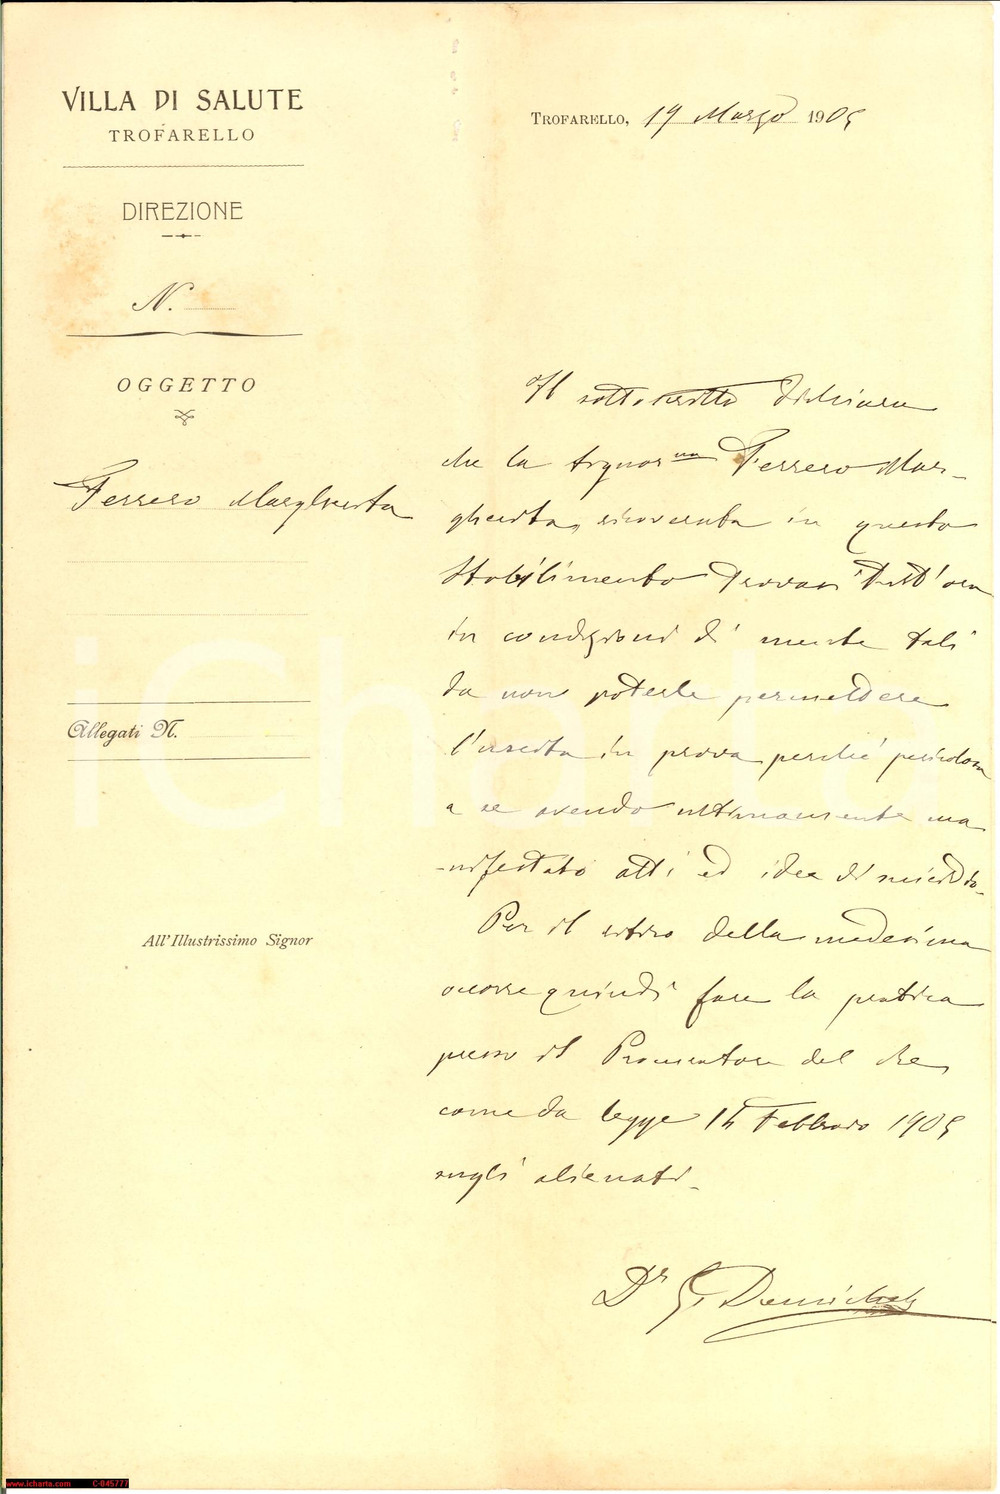 VILLA DI SALUTE
TROFARELLO
DIREZIONE
N.
OGGETTO
Ferrero Margherita
Allegati N.
All'Illustrissimo Signor
TROFARELLO, 19 Marzo 1905
Il sottoscritto dichiara
che la signorina Ferrero Mar-
gherita, ricoverata in questo
Stabilimento trovasi tutt'ora
in condizioni di mente tali
da non poterle permettere
l'uscita in prova perchè pericolosa
a se avendo ultimamente ma
-nifestato atti ed idea di suicidio.
Per il ritiro della medesima
occorre quindi fare la pratica
presso il Procuratore del Re
come da legge 14 Febbraio 1905
sugli alienati.
Dr G.
iCharta
www.icharta.com C-045777